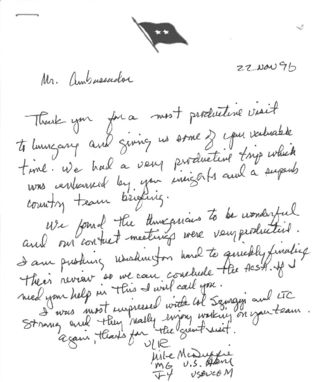 22 NOV 96
Mr. Ambassador
Thank you for a most productive visit
to Hungary and giving us some of your valuable
time. We had a very productive trip which
was enhanced by your insights and a superb
country team briefing.
We found the Hungarians to be wonderful
and our contact meetings were very productive.
I am pushing Washington hard to quickly finalize
their review so we can conclude the ACSA. If I
need your help in this I will call you.
I was most impressed with Col and LTC
Strong and they really enjoy working on your team.
Again, thanks for the great visit.
V/R
Mike
MG U.S. Army
USEUCOM